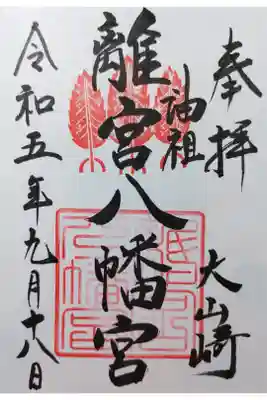 奉拝
油祖
大山崎
離宮八幡宮
令和五年九月十八日